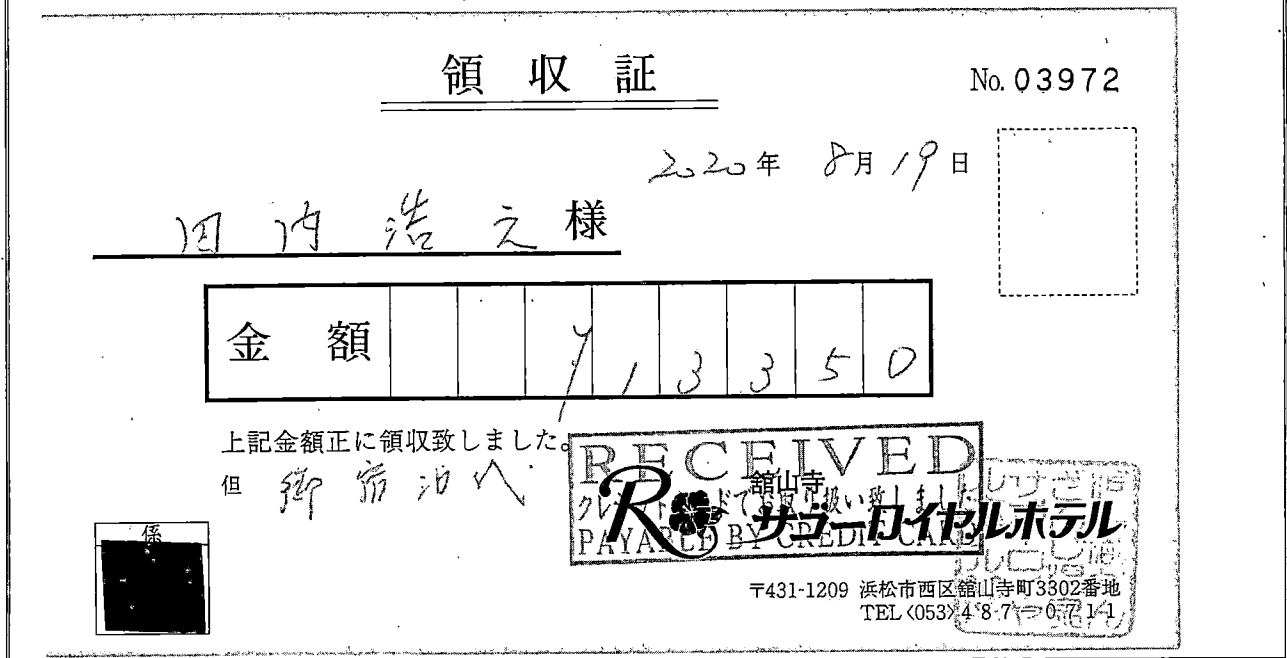 領収証
No. 03972
2020年 8月19日
田内浩之様
金額 ¥133350
上記金額正に領収致しました。
但 御宿泊代
係
RECEIVED
クレジットカードでお取り扱い致しました
PAYABLE BY CREDIT CARD
舘山寺
サゴーロイヤルホテル
〒431-1209 浜松市西区舘山寺町3302番地
TEL〈053〉487-0711